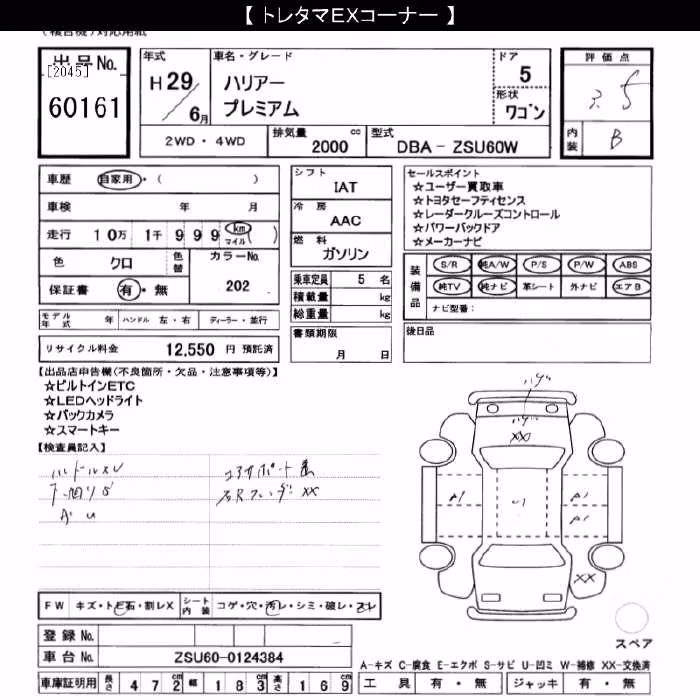 【 トレタマEXコーナー 】
(複合機)対応用紙
出品No.
[2045]
60161
年式
H29/6月
車名・グレード
ハリアー
プレミアム
ドア
5
形状
ワゴン
評価点
3.5
内装
B
2WD・4WD
排気量 2000 cc
型式 DBA－ZSU60W
車歴 自家用・( )
車検 年 月
走行 10万 1千 999 km マイル ( )
色 クロ
色替
カラーNo.
202
保証書 有・無
シフト
IAT
冷房
AAC
燃料
ガソリン
乗車定員 5 名
積載量 kg
総重量 kg
書類期限
月 日
セールスポイント
☆ユーザー買取車
☆トヨタセーフティセンス
☆レーダークルーズコントロール
☆パワーバックドア
☆メーカーナビ
装備品
S/R 純A/W P/S P/W ABS
純TV 純ナビ 革シート 外ナビ エアB
ナビ型番：
後日品
モデル年式 年 ハンドル 左・右 ディーラー・並行
リサイクル料金 12,550 円 預託済
【出品店申告欄(不良箇所・欠品・注意事項等)】
☆ビルトインETC
☆LEDヘッドライト
☆バックカメラ
☆スマートキー
【検査員記入】
A1
A1
A1
XX
XX
FW キズ・トビ石・割レX
シート内装 コゲ・穴・汚レ・シミ・破レ・スレ
登録No.
車台No. ZSU60-0124384
車庫証明用 長さ 472 幅 183 高さ 169
スペア
A－キズ C－腐食 E－エクボ S－サビ U－凹ミ W－補修 XX－交換済
工具 有・無 ジャッキ 有・無